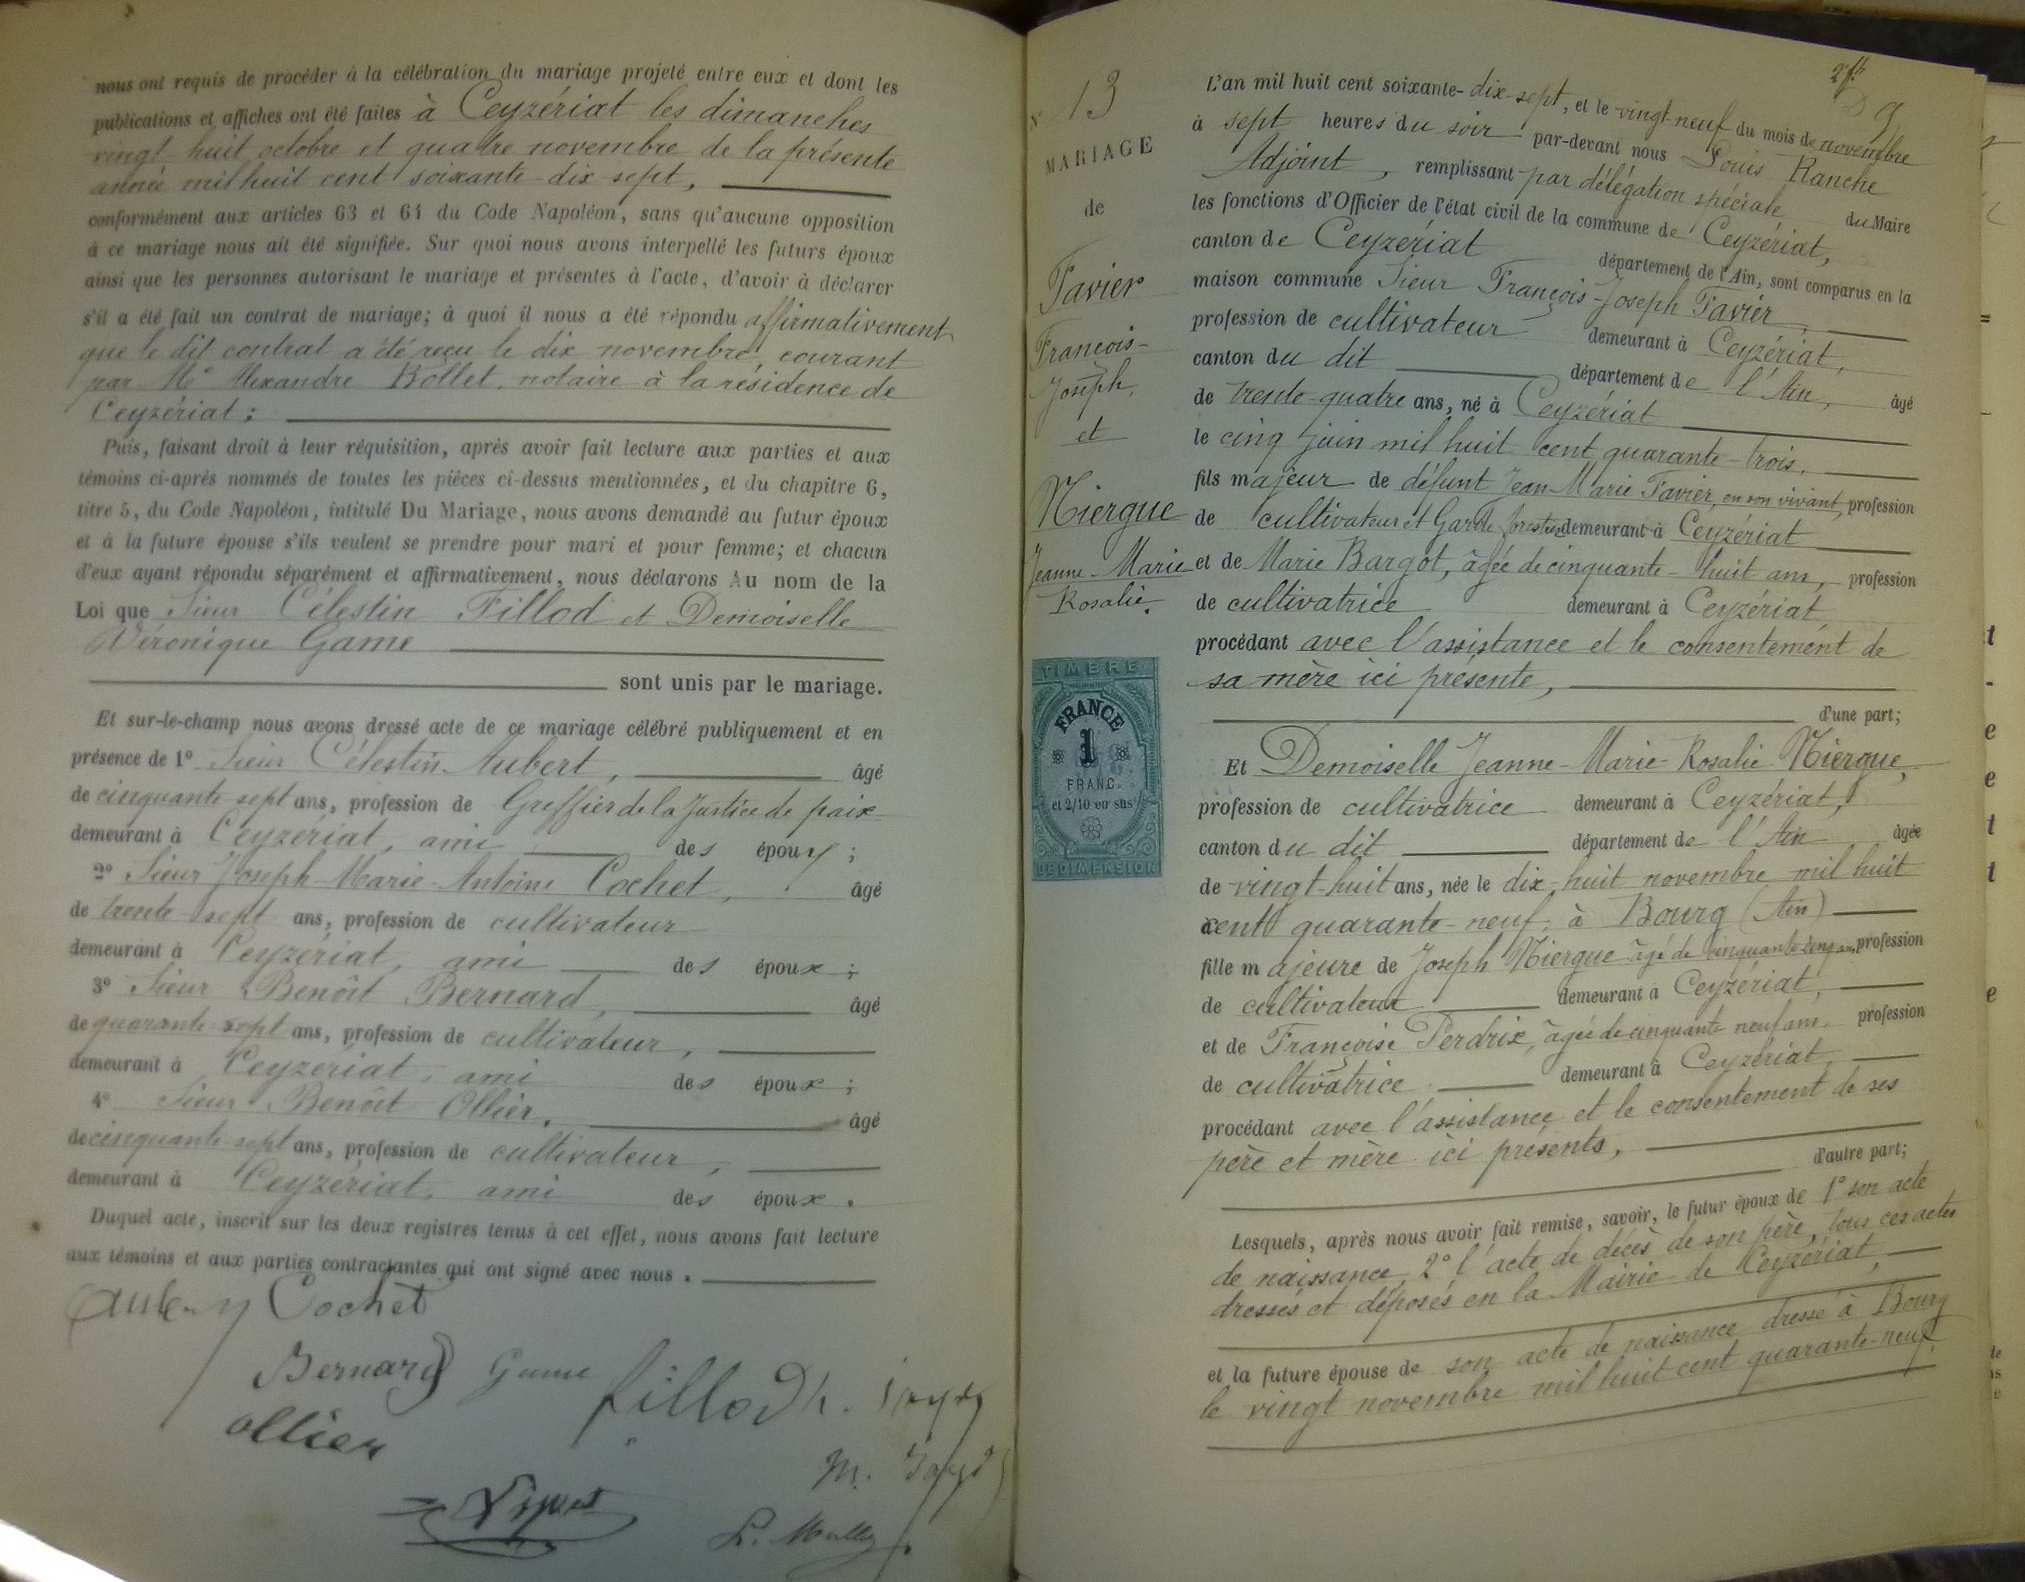 nous ont requis de procéder à la célébration du mariage projeté entre eux et dont les
publications et affiches ont été faites à Ceyzériat les dimanches
vingt-huit octobre et quatre novembre de la présente
année mil huit cent soixante-dix-sept,
conformément aux articles 63 et 64 du Code Napoléon, sans qu'aucune opposition
à ce mariage nous ait été signifiée. Sur quoi nous avons interpellé les futurs époux
ainsi que les personnes autorisant le mariage et présentes à l'acte, d'avoir à déclarer
s'il a été fait un contrat de mariage; à quoi il nous a été répondu affirmativement
que le dit contrat a été reçu le dix novembre, courant
par Me Alexandre Bollet, notaire à la résidence de
Ceyzériat:
Puis, faisant droit à leur réquisition, après avoir fait lecture aux parties et aux
témoins ci-après nommés de toutes les pièces ci-dessus mentionnées, et du chapitre 6,
titre 5, du Code Napoléon, intitulé Du Mariage, nous avons demandé au futur époux
et à la future épouse s'ils veulent se prendre pour mari et pour femme; et chacun
d'eux ayant répondu séparément et affirmativement, nous déclarons Au nom de la
Loi que Sieur Célestin Fillod et Demoiselle
Véronique Game
sont unis par le mariage.
Et sur-le-champ nous avons dressé acte de ce mariage célébré publiquement et en
présence de 1° Sieur Célestin Aubert, âgé
de cinquante-sept ans, profession de Greffier de la Justice de paix
demeurant à Ceyzériat, ami des époux;
2° Sieur Joseph-Marie-Antoine Cochet, âgé
de trente-sept ans, profession de cultivateur
demeurant à Ceyzériat, ami des époux;
3° Sieur Benôit Bernard, âgé
de quarante-sept ans, profession de cultivateur,
demeurant à Ceyzériat, ami des époux;
4° Sieur Benôit Ollier, âgé
de cinquante-sept ans, profession de cultivateur,
demeurant à Ceyzériat, ami des époux.
Duquel acte, inscrit sur les deux registres tenus à cet effet, nous avons fait lecture
aux témoins et aux parties contractantes qui ont signé avec nous.
Cochet
Bernard Game fillod
ollier
N° 13
MARIAGE
de
Favier
François-
Joseph.
et
Niergue
Jeanne-Marie
Rosalie.
TIMBRE
FRANCE
1
FRANC.
et 2/10 en sus
DE DIMENSION
L'an mil huit cent soixante-dix-sept, et le vingt-neuf du mois de novembre
à sept heures du soir par-devant nous Louis Ranche
Adjoint, remplissant par délégation spéciale du Maire
les fonctions d'Officier de l'état civil de la commune de Ceyzériat,
canton de Ceyzériat département de l'Ain, sont comparus en la
maison commune Sieur François-Joseph Favier,
profession de cultivateur demeurant à Ceyzériat,
canton du dit département de l'Ain, âgé
de trente-quatre ans, né à Ceyzériat
le cinq juin mil huit cent quarante-trois,
fils majeur de défunt Jean-Marie Favier, en son vivant, profession
de cultivateur et Garde forestier demeurant à Ceyzériat
et de Marie Bargot, âgée de cinquante-huit ans, profession
de cultivatrice demeurant à Ceyzériat
procédant avec l'assistance et le consentement de
sa mère ici présente,
d'une part;
Et Demoiselle Jeanne-Marie-Rosalie Niergue,
profession de cultivatrice demeurant à Ceyzériat,
canton du dit département de l'Ain âgée
de vingt-huit ans, née le dix-huit novembre mil huit
cent quarante-neuf, à Bourg (Ain)
fille majeure de Joseph Niergue âgé de cinquante-cinq ans, profession
de cultivateur demeurant à Ceyzériat,
et de Françoise Perdrix, âgée de cinquante neuf ans, profession
de cultivatrice demeurant à Ceyzériat,
procédant avec l'assistance et le consentement de ses
père et mère ici présents,
d'autre part;
Lesquels, après nous avoir fait remise, savoir, le futur époux de 1° son acte
de naissance, 2° l'acte de décès de son père, tous ces actes
dressés et déposés en la Mairie de Ceyzériat,
et la future épouse de son acte de naissance dressé à Bourg
le vingt novembre mil huit cent quarante-neuf,